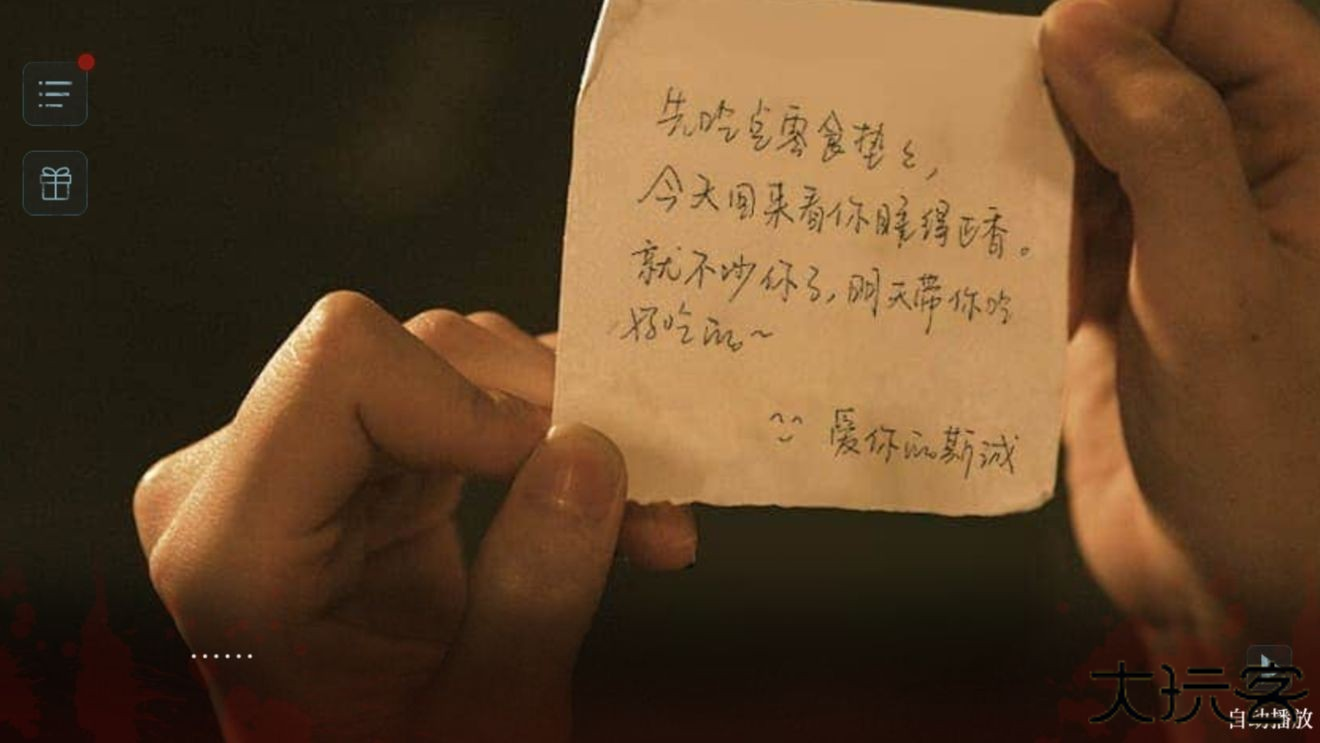 先吃点零食垫々,
今天回来看你睡得正香。
就不吵你了,明天带你吃
好吃的~
爱你的斯诚
……
大玩客
自动播放